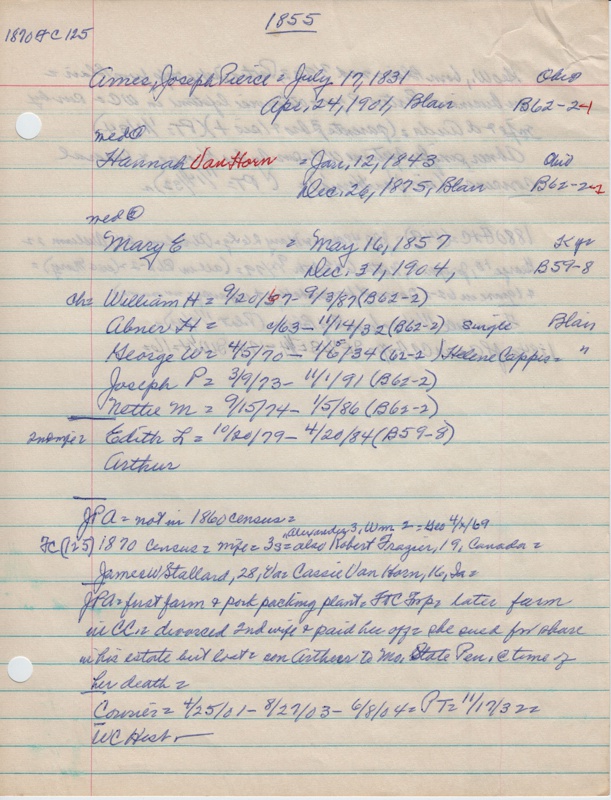 1855
1870 FC 125
Ames, Joseph Pierce = July 17, 1831 Ohio
Apr. 24, 1901, Blair B62-2-1
med ①
Hannah Van Horn = Jan. 12, 1843 Ohio
Dec. 26, 1875, Blair B62-2-1
med ②
Mary E = May 16, 1857 Ky
Dec. 31, 1904, B59-8
ch = William H = 9/20/67 - 9/3/87 (B62-2)
Abner H = c/63 - 11/14/32 (B62-2) single Blair
George W = 4/5/70 - 1/15/34 (62-2) Helene Cappis = "
Joseph P = 3/9/73 - 11/1/91 (B62-2)
Nettie M = 9/15/74 - 1/5/86 (B62-2)
2nd mge Edith L = 10/20/79 - 4/20/84 (B59-8)
Arthur
JPA = not in 1860 census =
Alexander 3, Wm 2 = Geo 4/12/69
FC (125) 1870 census = mge = 3s = also Robert Frazier, 19, Canada =
James W Stallard, 28, Va = Cassie Van Horn, 16, Ia =
JPA = first farm & pork packing plant = FtC Twp = later farm
in CC = divorced 2nd wife & paid her off = she sued for share
in his estate but lost = son Arthur to Mo. State Pen. @ time of
her death =
Courier = 4/25/01 - 8/27/03 - 6/8/04 = PT = 11/17/32 =
WC Hist -